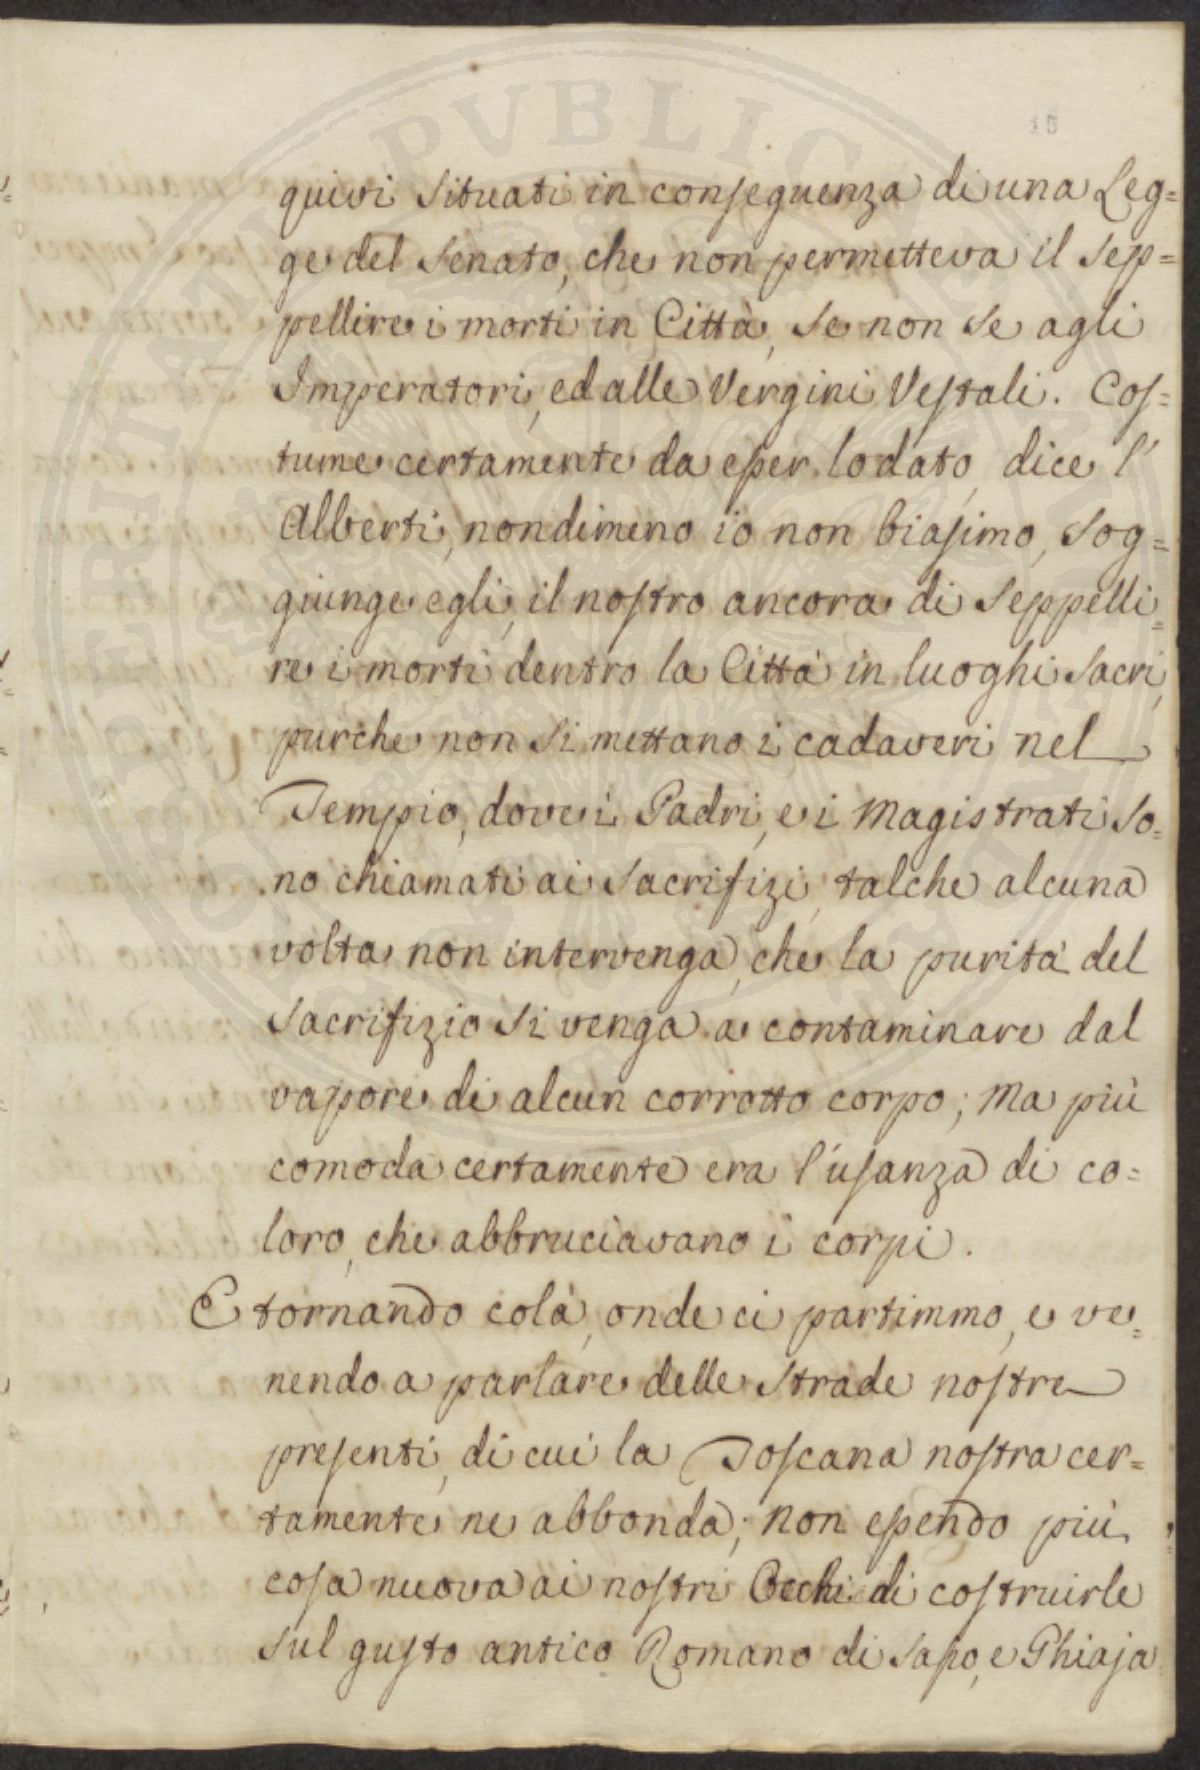 15
quivi situati in conseguenza di una Leg=
ge del Senato, che non permetteva il sep=
pellire i morti in Città, se non se agli
Imperatori, ed alle Vergini Vestali. Cos=
tume certamente da esser lodato, dice l'
Alberti, nondimeno io non biasimo, sog=
giunge egli, il nostro ancora di seppelli=
re i morti dentro la Città in luoghi sacri,
purche non si mettano i cadaveri nel
Tempio, dove i Padri, e i Magistrati so=
no chiamati ai sacrifizi, talche alcuna
volta non intervenga, che la purità del
sacrifizio si venga a contaminare dal
vapore di alcun corrotto corpo; Ma più
comoda certamente era l'usanza di co=
loro, che abbruciavano i corpi.
E tornando colà, onde ci partimmo, e ve=
nendo a parlare delle strade nostre
presenti, di cui la Toscana nostra cer=
tamente ne abbonda; non essendo più
cosa nuova ai nostri Occhi di costruirle
sul gusto antico Romano di sasso, e Ghiaja